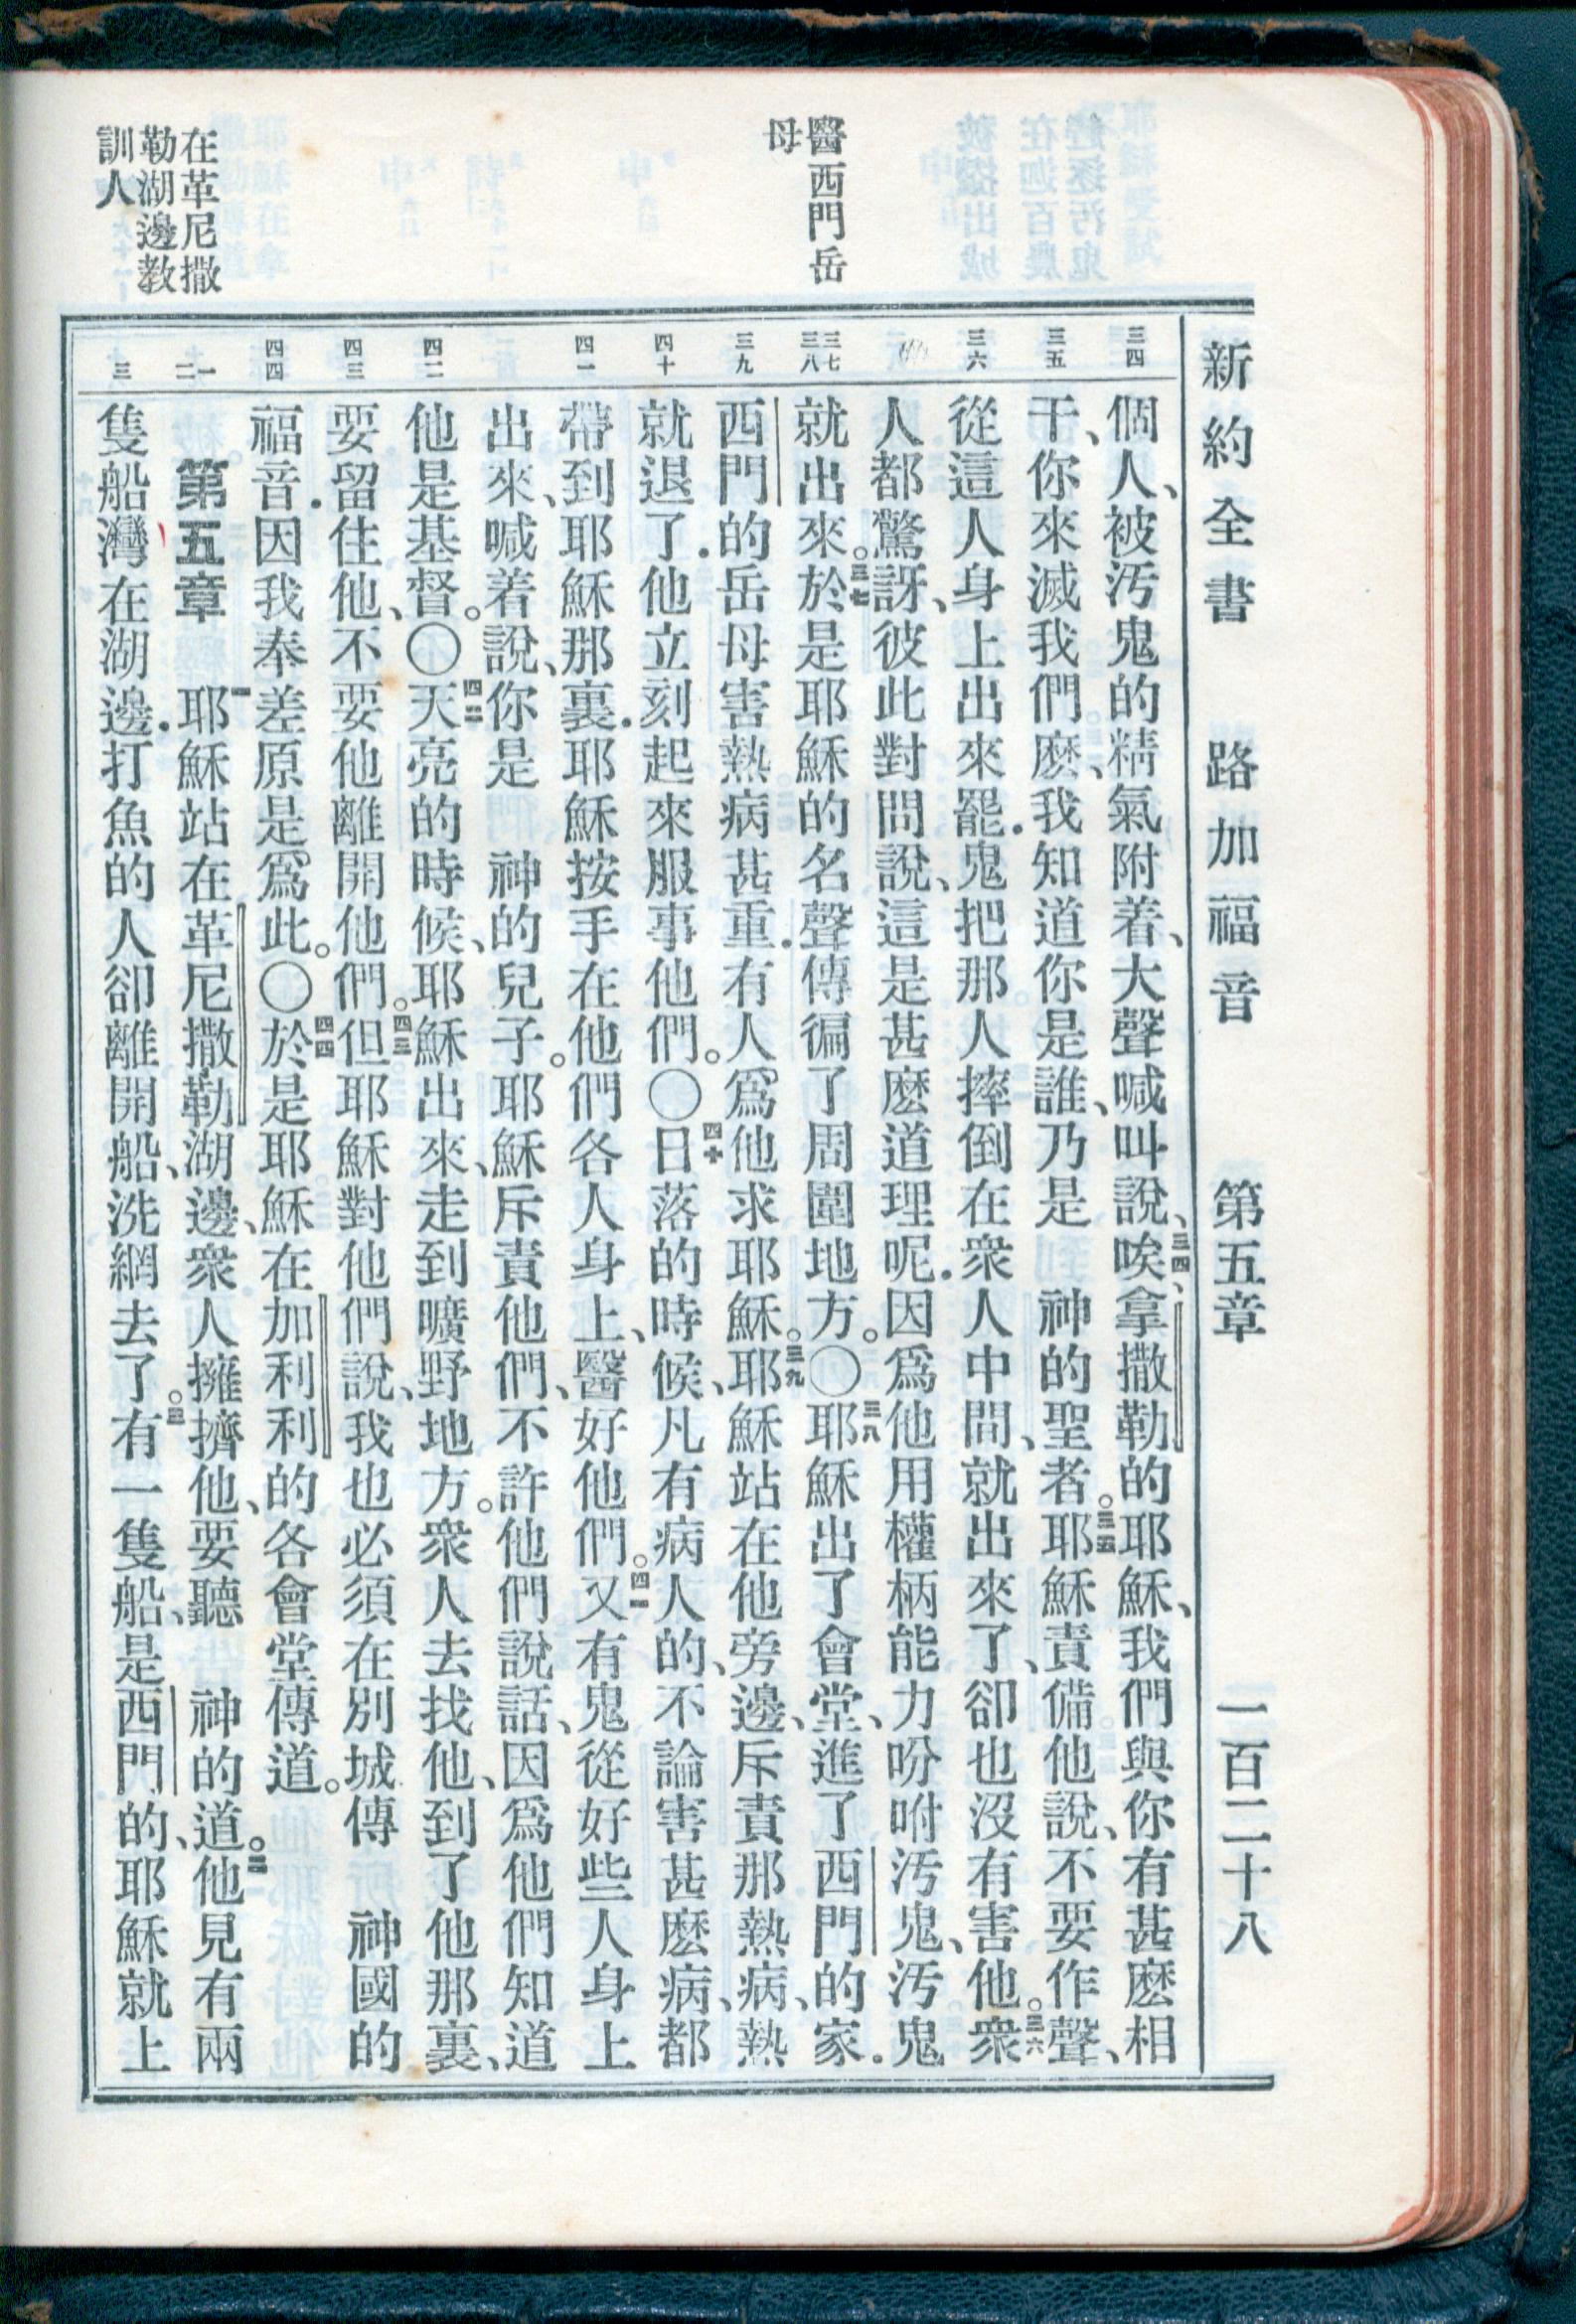 新約全書　路加福音　第五章　一百二十八
醫西門岳
母
在革尼撒
勒湖邊教
訓人
三四
三五
三六
三七
三八
三九
四十
四一
四二
四三
四四
一
二
三
個人、被汚鬼的精氣附着、大聲喊叫說、三四唉、拿撒勒的耶穌、我們與你有甚麽相
干、你來滅我們麽、我知道你是誰、乃是　神的聖者。三五耶穌責備他說、不要作聲、
從這人身上出來罷．鬼把那人摔倒在衆人中間、就出來了、卻也沒有害他。三六衆
人都驚訝、彼此對問說、這是甚麽道理呢．因爲他用權柄能力吩咐汚鬼、汚鬼
就出來。三七於是耶穌的名聲傳徧了周圍地方。〇三八耶穌出了會堂、進了西門的家．
西門的岳母害熱病甚重．有人爲他求耶穌。三九耶穌站在他旁邊、斥責那熱病、熱
就退了．他立刻起來服事他們。〇四十日落的時候、凡有病人的、不論害甚麽病、都
帶到耶穌那裏．耶穌按手在他們各人身上、醫好他們。四一又有鬼從好些人身上
出來、喊着說、你是　神的兒子。耶穌斥責他們、不許他們說話、因爲他們知道
他是基督。〇四二天亮的時候、耶穌出來、走到曠野地方。衆人去找他、到了他那裏、
要留住他、不要他離開他們。四三但耶穌對他們說、我也必須在別城傳　神國的
福音．因我奉差原是爲此。〇四四於是耶穌在加利利的各會堂傳道。
第五章　一耶穌站在革尼撒勒湖邊、衆人擁擠他、要聽　神的道。二他見有兩
隻船灣在湖邊．打魚的人卻離開船、洗網去了。三有一隻船、是西門的、耶穌就上